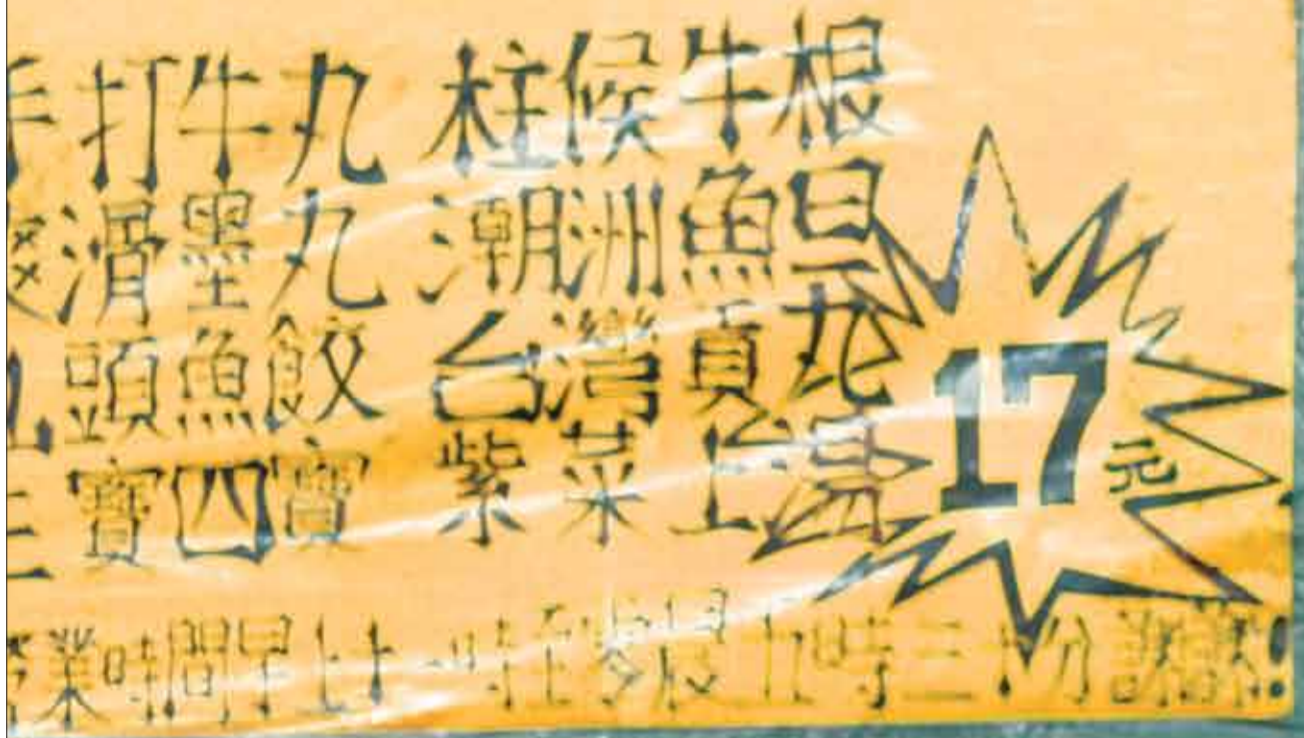 手打牛丸 柱候牛根
爽滑墨丸 潮洲魚旦
九頭魚餃 台灣貢丸
三寶四寶 紫菜
17元
營業時間早上十一時至凌晨五時三十分 謝謝!